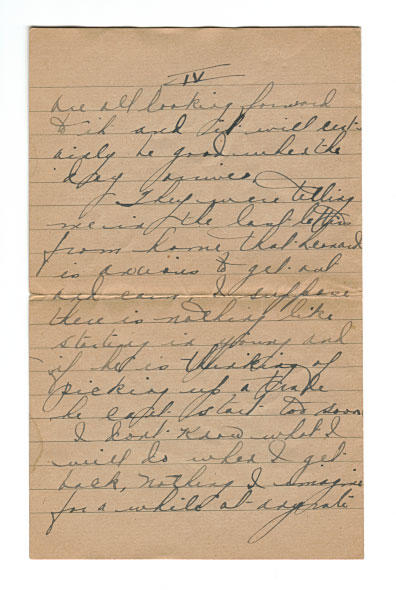 IV
are all looking forward
to it and it will cert-
ainly be good when the
day arrives.
They were telling
me in the last letter
from home that Leonard
is anxious to get out
and earn. I suppose
there is nothing like
starting in young and
if he is thinking of
picking up a trade
he can't start too soon
I don't know what I
will do when I get
back, nothing I imagine
for a while at anyrate